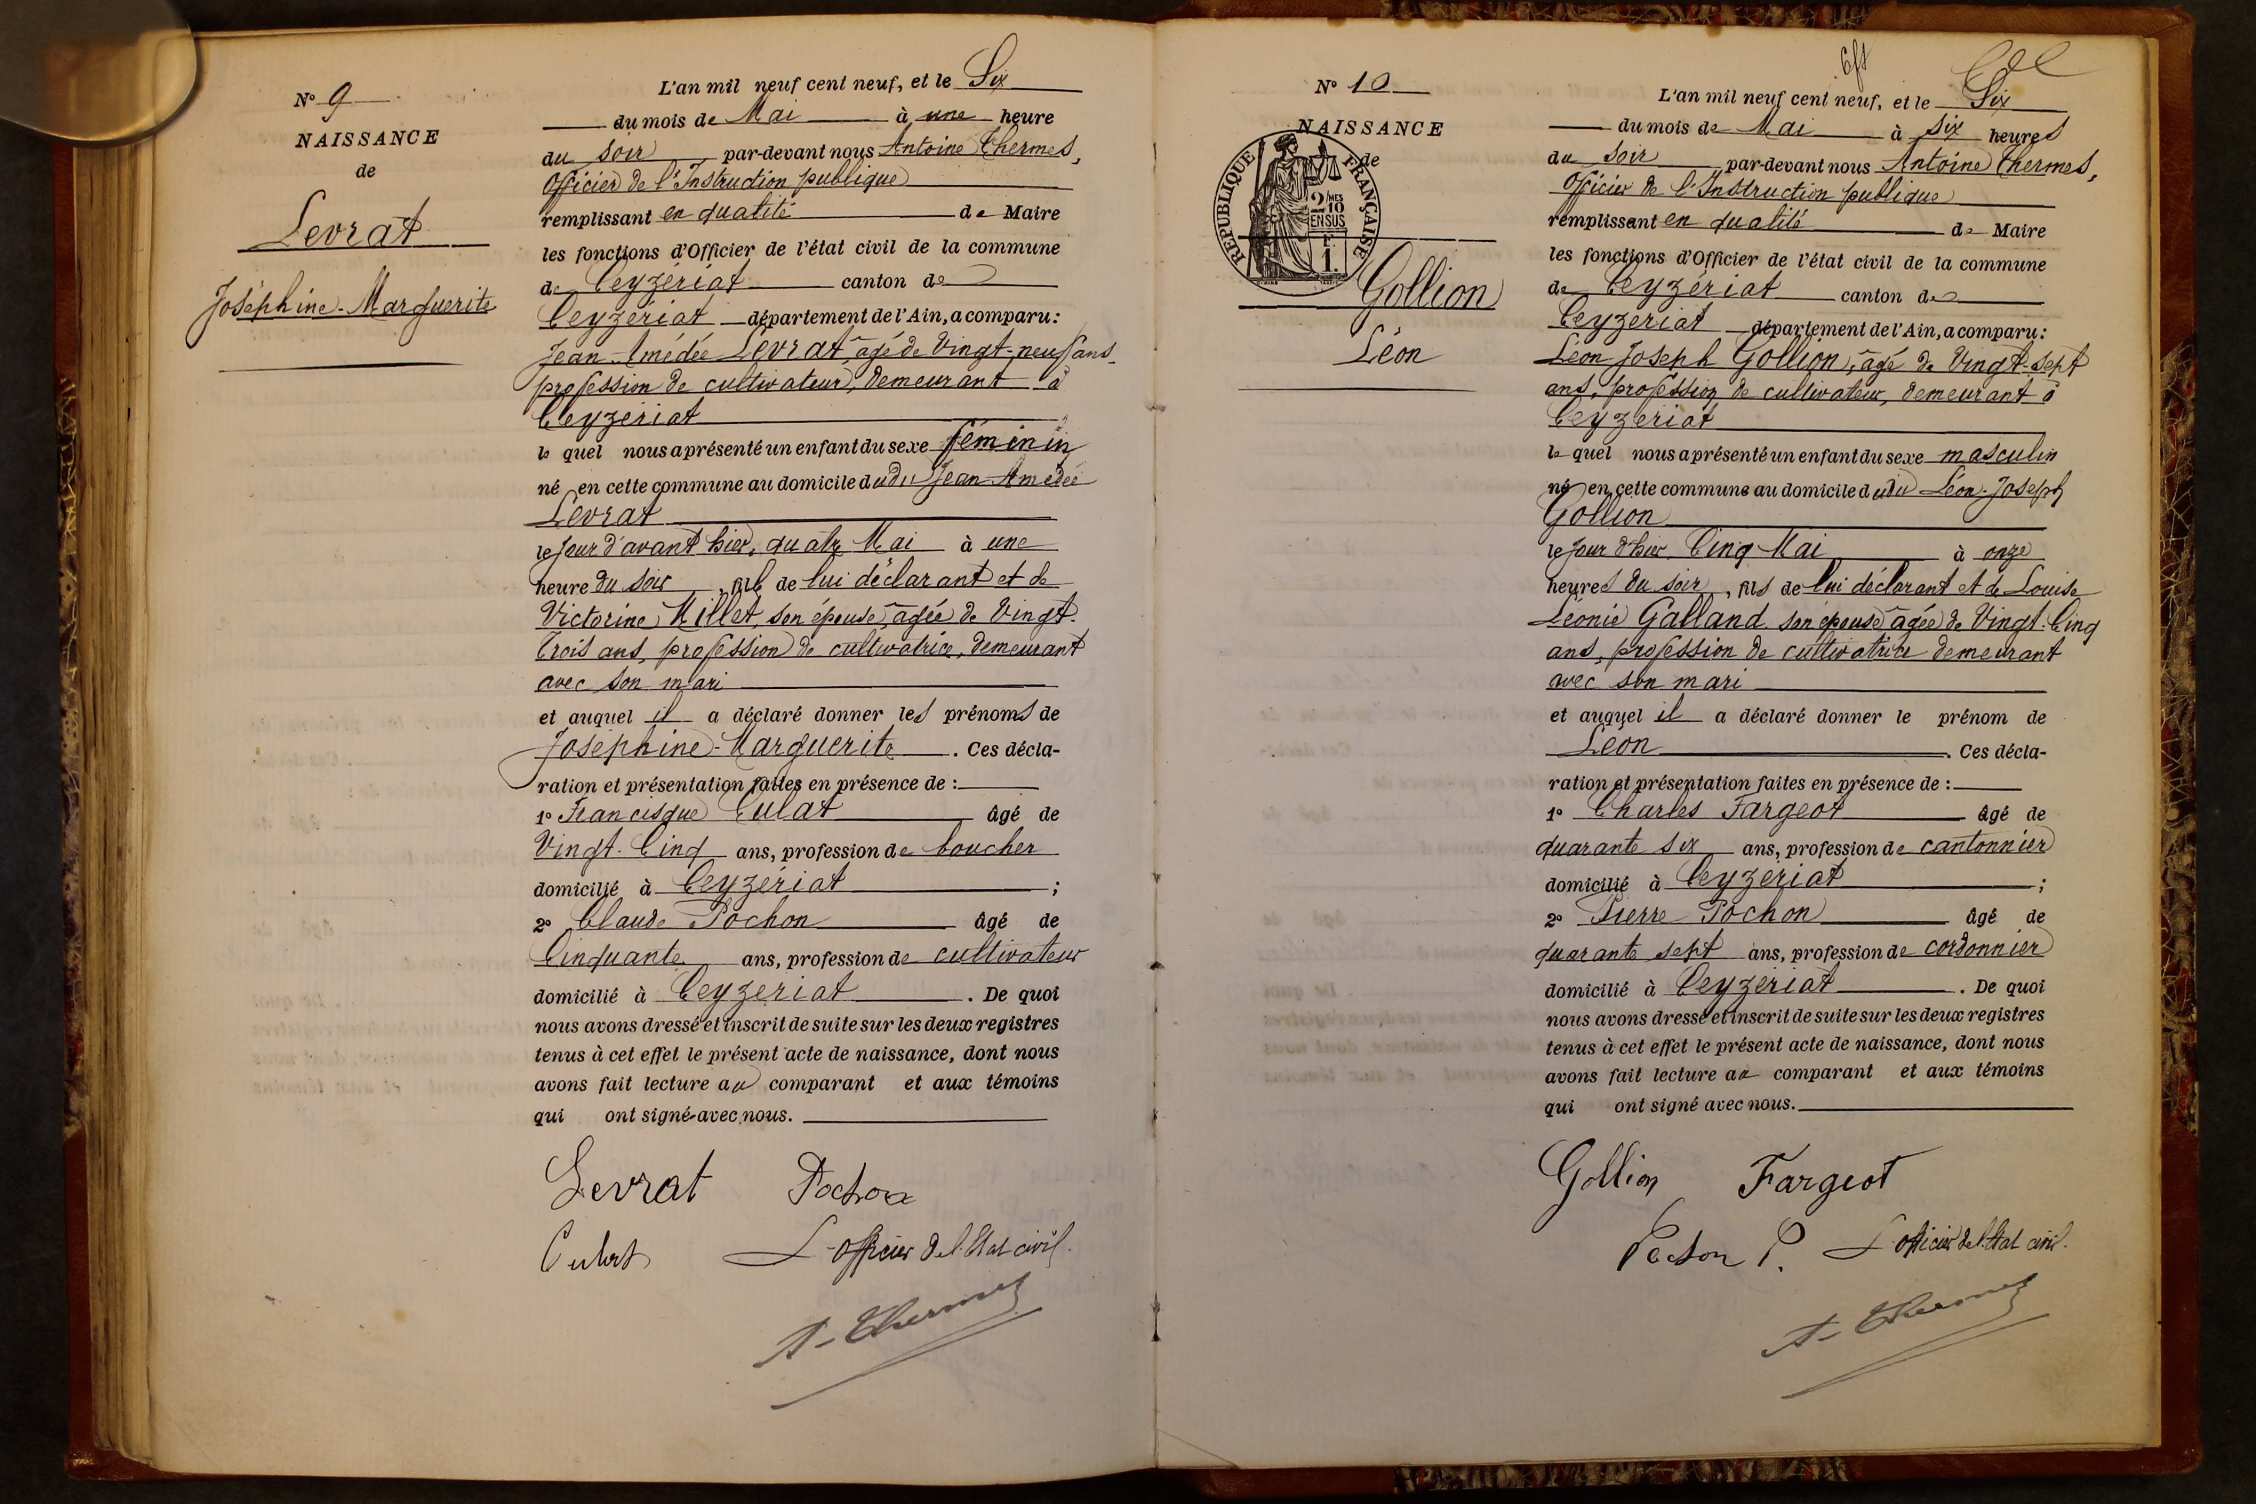 Nº 9
NAISSANCE
de
Levrat
Joséphine-Marguerite
L'an mil neuf cent neuf, et le Six
du mois de Mai à une heure
du soir par-devant nous Antoine Thermes,
Officier de l'Instruction publique
remplissant en qualité de Maire
les fonctions d'Officier de l'état civil de la commune
de Ceyzériat canton de
Ceyzériat département de l'Ain, a comparu :
Jean-Amédée Levrat, âgé de Vingt-neuf ans
profession de cultivateur, demeurant à
Ceyzériat
le quel nous a présenté un enfant du sexe féminin
né en cette commune au domicile dudit Jean-Amédée
Levrat
le jour d'avant hier, quatre Mai à une
heure du soir, de lui déclarant et de
Victorine Millet, son épouse, âgée de Vingt-
Trois ans, profession de cultivatrice, demeurant
avec son mari
et auquel il a déclaré donner les prénoms de
Joséphine-Marguerite. Ces décla-
ration et présentation faites en présence de :
1º Francisque Culat âgé de
Vingt-Cinq ans, profession de boucher
domicilié à Ceyzériat ;
2º Claude Pochon âgé de
Cinquante ans, profession de cultivateur
domicilié à Ceyzériat. De quoi
nous avons dressé et inscrit de suite sur les deux registres
tenus à cet effet le présent acte de naissance, dont nous
avons fait lecture au comparant et aux témoins
qui ont signé avec nous.
Levrat Pochon
Culat L'officier de l'Etat civil.
A. Thermes
Nº 10
NAISSANCE
de
REPUBLIQUE FRANÇAISE
2/10 MES
EN SUS
1
Gollion
Léon
L'an mil neuf cent neuf, et le Six
du mois de Mai à six heures
du soir par-devant nous Antoine Thermes,
Officier de l'Instruction publique
remplissant en qualité de Maire
les fonctions d'Officier de l'état civil de la commune
de Ceyzériat canton de
Ceyzériat département de l'Ain, a comparu :
Léon Joseph Gollion, âgé de Vingt-sept
ans, profession de cultivateur, demeurant à
Ceyzériat
le quel nous a présenté un enfant du sexe masculin
né en cette commune au domicile dudit Léon-Joseph
Gollion
le jour d'hier Cinq Mai à onze
heures du soir, fils de lui déclarant et de Louise
Léonie Galland son épouse âgée de Vingt-Cinq
ans, profession de cultivatrice demeurant
avec son mari
et auquel il a déclaré donner le prénom de
Léon. Ces décla-
ration et présentation faites en présence de :
1º Charles Fargeot âgé de
quarante six ans, profession de cantonnier
domicilié à Ceyzériat ;
2º Pierre Pochon âgé de
quarante sept ans, profession de cordonnier
domicilié à Ceyzériat. De quoi
nous avons dressé et inscrit de suite sur les deux registres
tenus à cet effet le présent acte de naissance, dont nous
avons fait lecture au comparant et aux témoins
qui ont signé avec nous.
Gollion Fargeot
Pochon P. L'officier de l'Etat civil.
A. Thermes